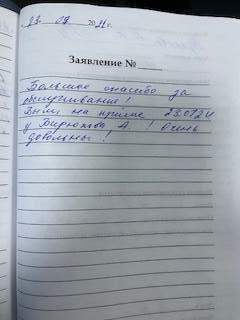 23 09 2021г.
Заявление №
Большое спасибо за
обслуживание!
Были на приёме 23.09.21
у Бирюкова А. ! Очень
довольны!